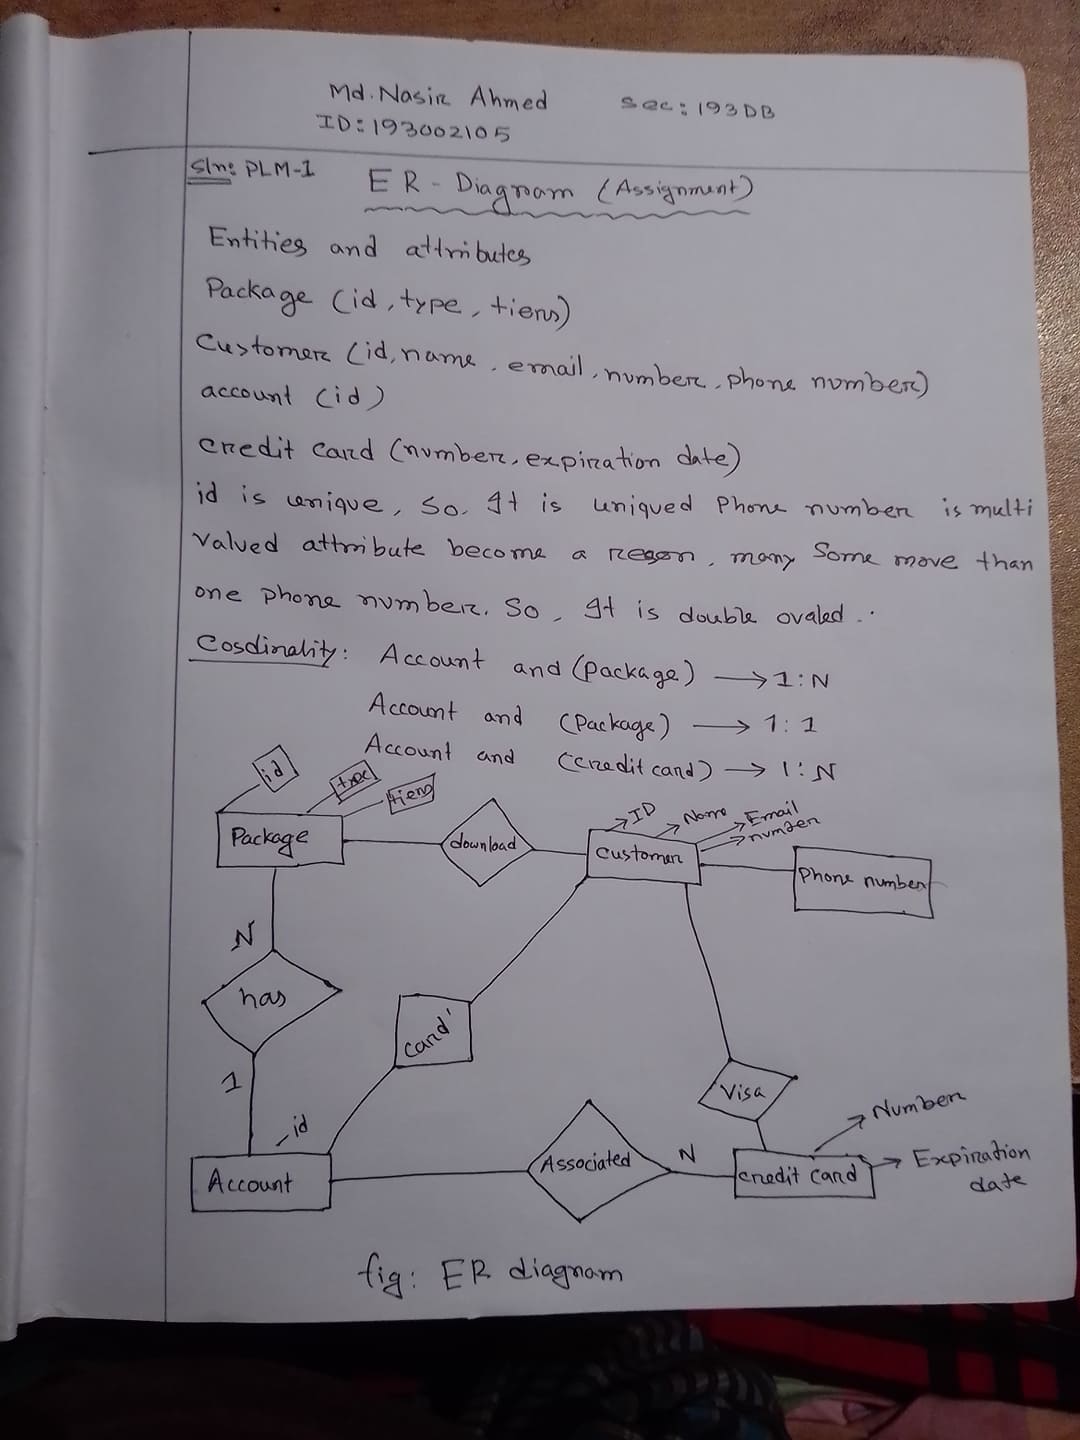 Md. Nasir Ahmed
Sec: 193DB
ID: 193002105
Sln: PLM-1
ER-Diagram (Assignment)
Entities and attributes
Package (id, type, tiers)
Customer (id, name, email, number, phone number)
account (id)
credit card (number, expiration date)
id is unique, So, It is uniqued Phone number is multi
valued attribute become a reson, many Some move than
one phone number. So, It is double ovaled.
Cosdinality: Account and (package) → 1:N
Account and (Package) → 1:1
Account and (credit card) → 1:N
id
tiers
Package
download
Customer
ID
Name
Email
number
Phone number
N
has
1
card
Visa
id
Account
Associated
N
credit card
Number
Expiration
date
fig: ER diagram